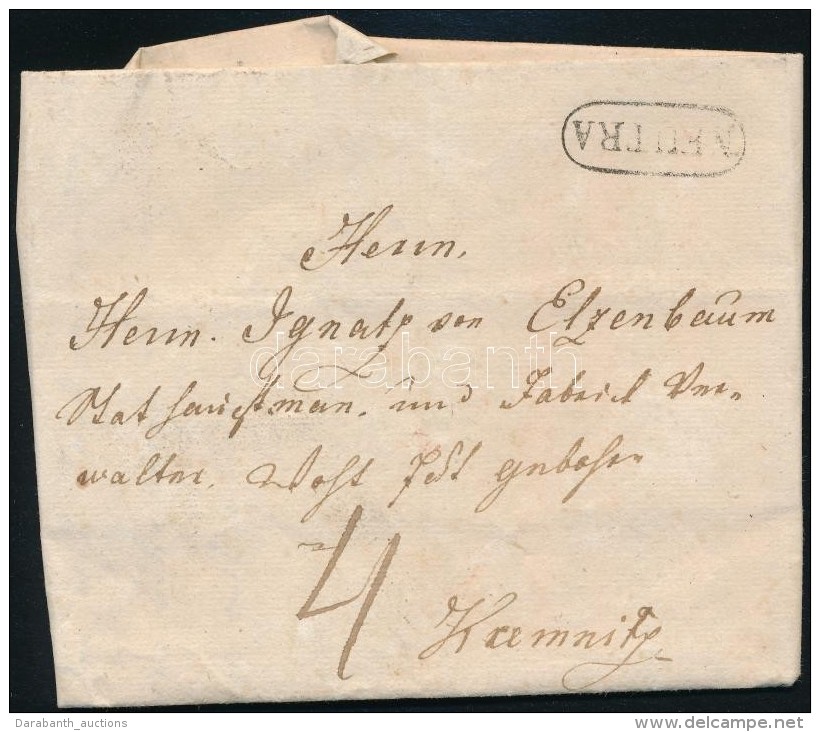 NEUTRA
Herrn,
Herrn. Ignatz von Elzenbaum
darabanth
Stathauptman. und Fabrick Ver=
walter. Wohl Edl gebohrn
4
Kremnitz
Darabanth_auctions
www.delcampe.net